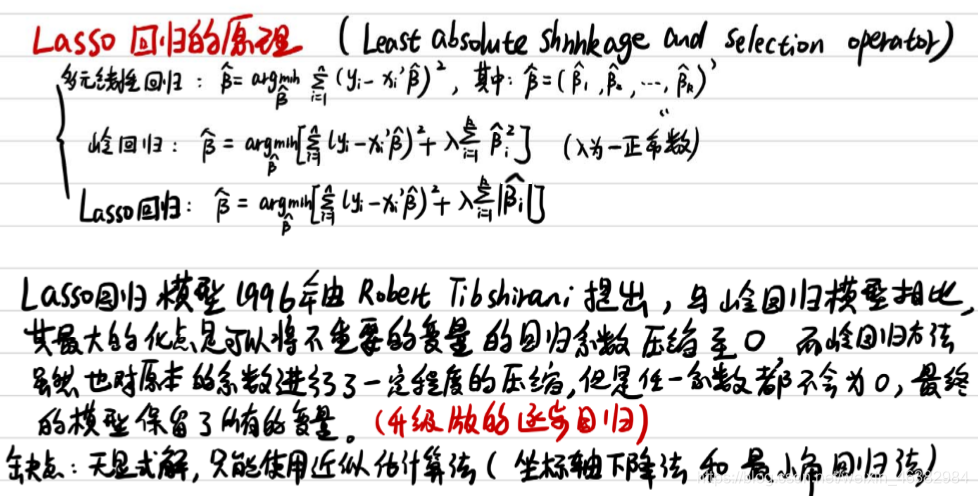 Lasso 回归的原理 (Least absolute shrinkage and selection operator)
多元线性回归: β̂ = argmin_β̂ Σ_{i=1}^{n} (yi - xi'β̂)², 其中: β̂ = (β̂₁, β̂₂, ···, β̂ₖ)'
岭回归: β̂ = argmin_β̂ [Σ_{i=1}^{n} (yi - xi'β̂)² + λ Σ_{i=1}^{k} β̂i²] (λ为一正常数)
Lasso回归: β̂ = argmin_β̂ [Σ_{i=1}^{n} (yi - xi'β̂)² + λ Σ_{i=1}^{k} |β̂i|]
Lasso回归模型1996年由 Robert Tibshirani 提出, 与岭回归模型相比,
其最大的优点是可以将不重要的变量的回归系数压缩至0, 而岭回归方法
虽然也对原本的系数进行了一定程度的压缩, 但是任一系数都不会为0, 最终
的模型保留了所有的变量。(升级版的逐步回归)
缺点: 无显式解, 只能使用近似估计算法 (坐标轴下降法和最小角回归法)